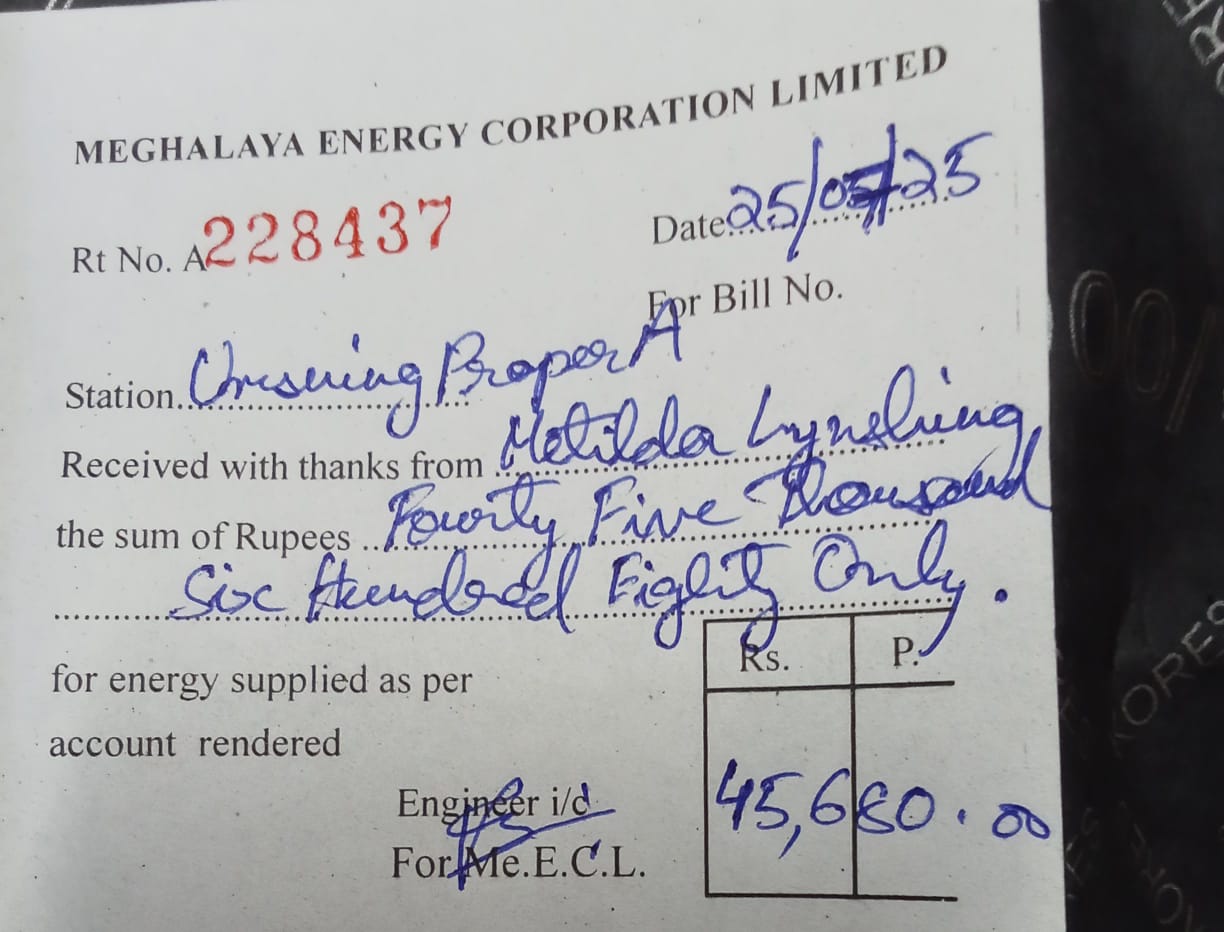 MEGHALAYA ENERGY CORPORATION LIMITED
Rt No. A228437
Date 25/05/25
For Bill No.
Station Umsning Proper A
Received with thanks from Metilda Lynshiing
the sum of Rupees Fourty Five Thousand
Six Hundred Eighty Only.
for energy supplied as per
account rendered
Rs. P.
45,680.00
Engineer i/c
For Me.E.C.L.